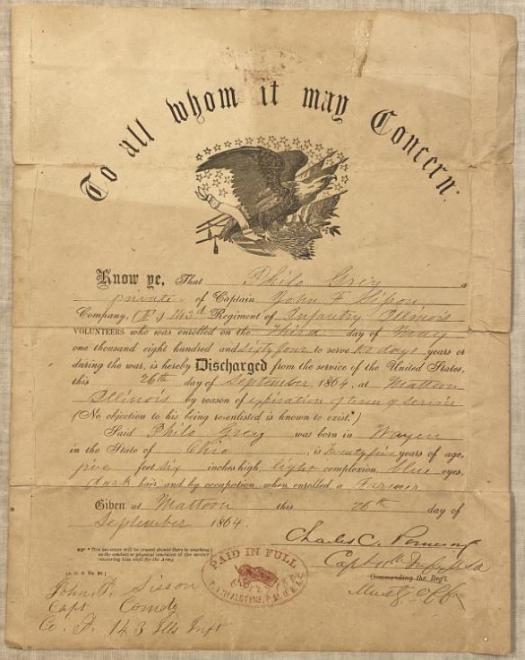 To all whom it may Concern:
Know ye, That Philo Grey a
private of Captain John F Sisson,
Company, (F,) 143d Regiment of Infantry Illinois
VOLUNTEERS who was enrolled on the Third day of May
one thousand eight hundred and Sixty four to serve 100 days years or
during the war, is hereby Discharged from the service of the United States,
this 26th day of September, 1864, at Mattoon
Illinois by reason of expiration of term of service
(No objection to his being re-enlisted is known to exist.*)
Said Philo Grey was born in
in the State of Ohio, is Twenty five years of age,
five feet six inches high, light complexion, blue eyes,
dark hair and by occupation, when enrolled, a Farmer
Given at Mattoon this 26th day of
September 1864.
Charles C.
Capt Inf
Commanding the Reg't.
PAID IN FULL
John F. Sisson
Capt Comdg
Co. F 143 Ills Inft